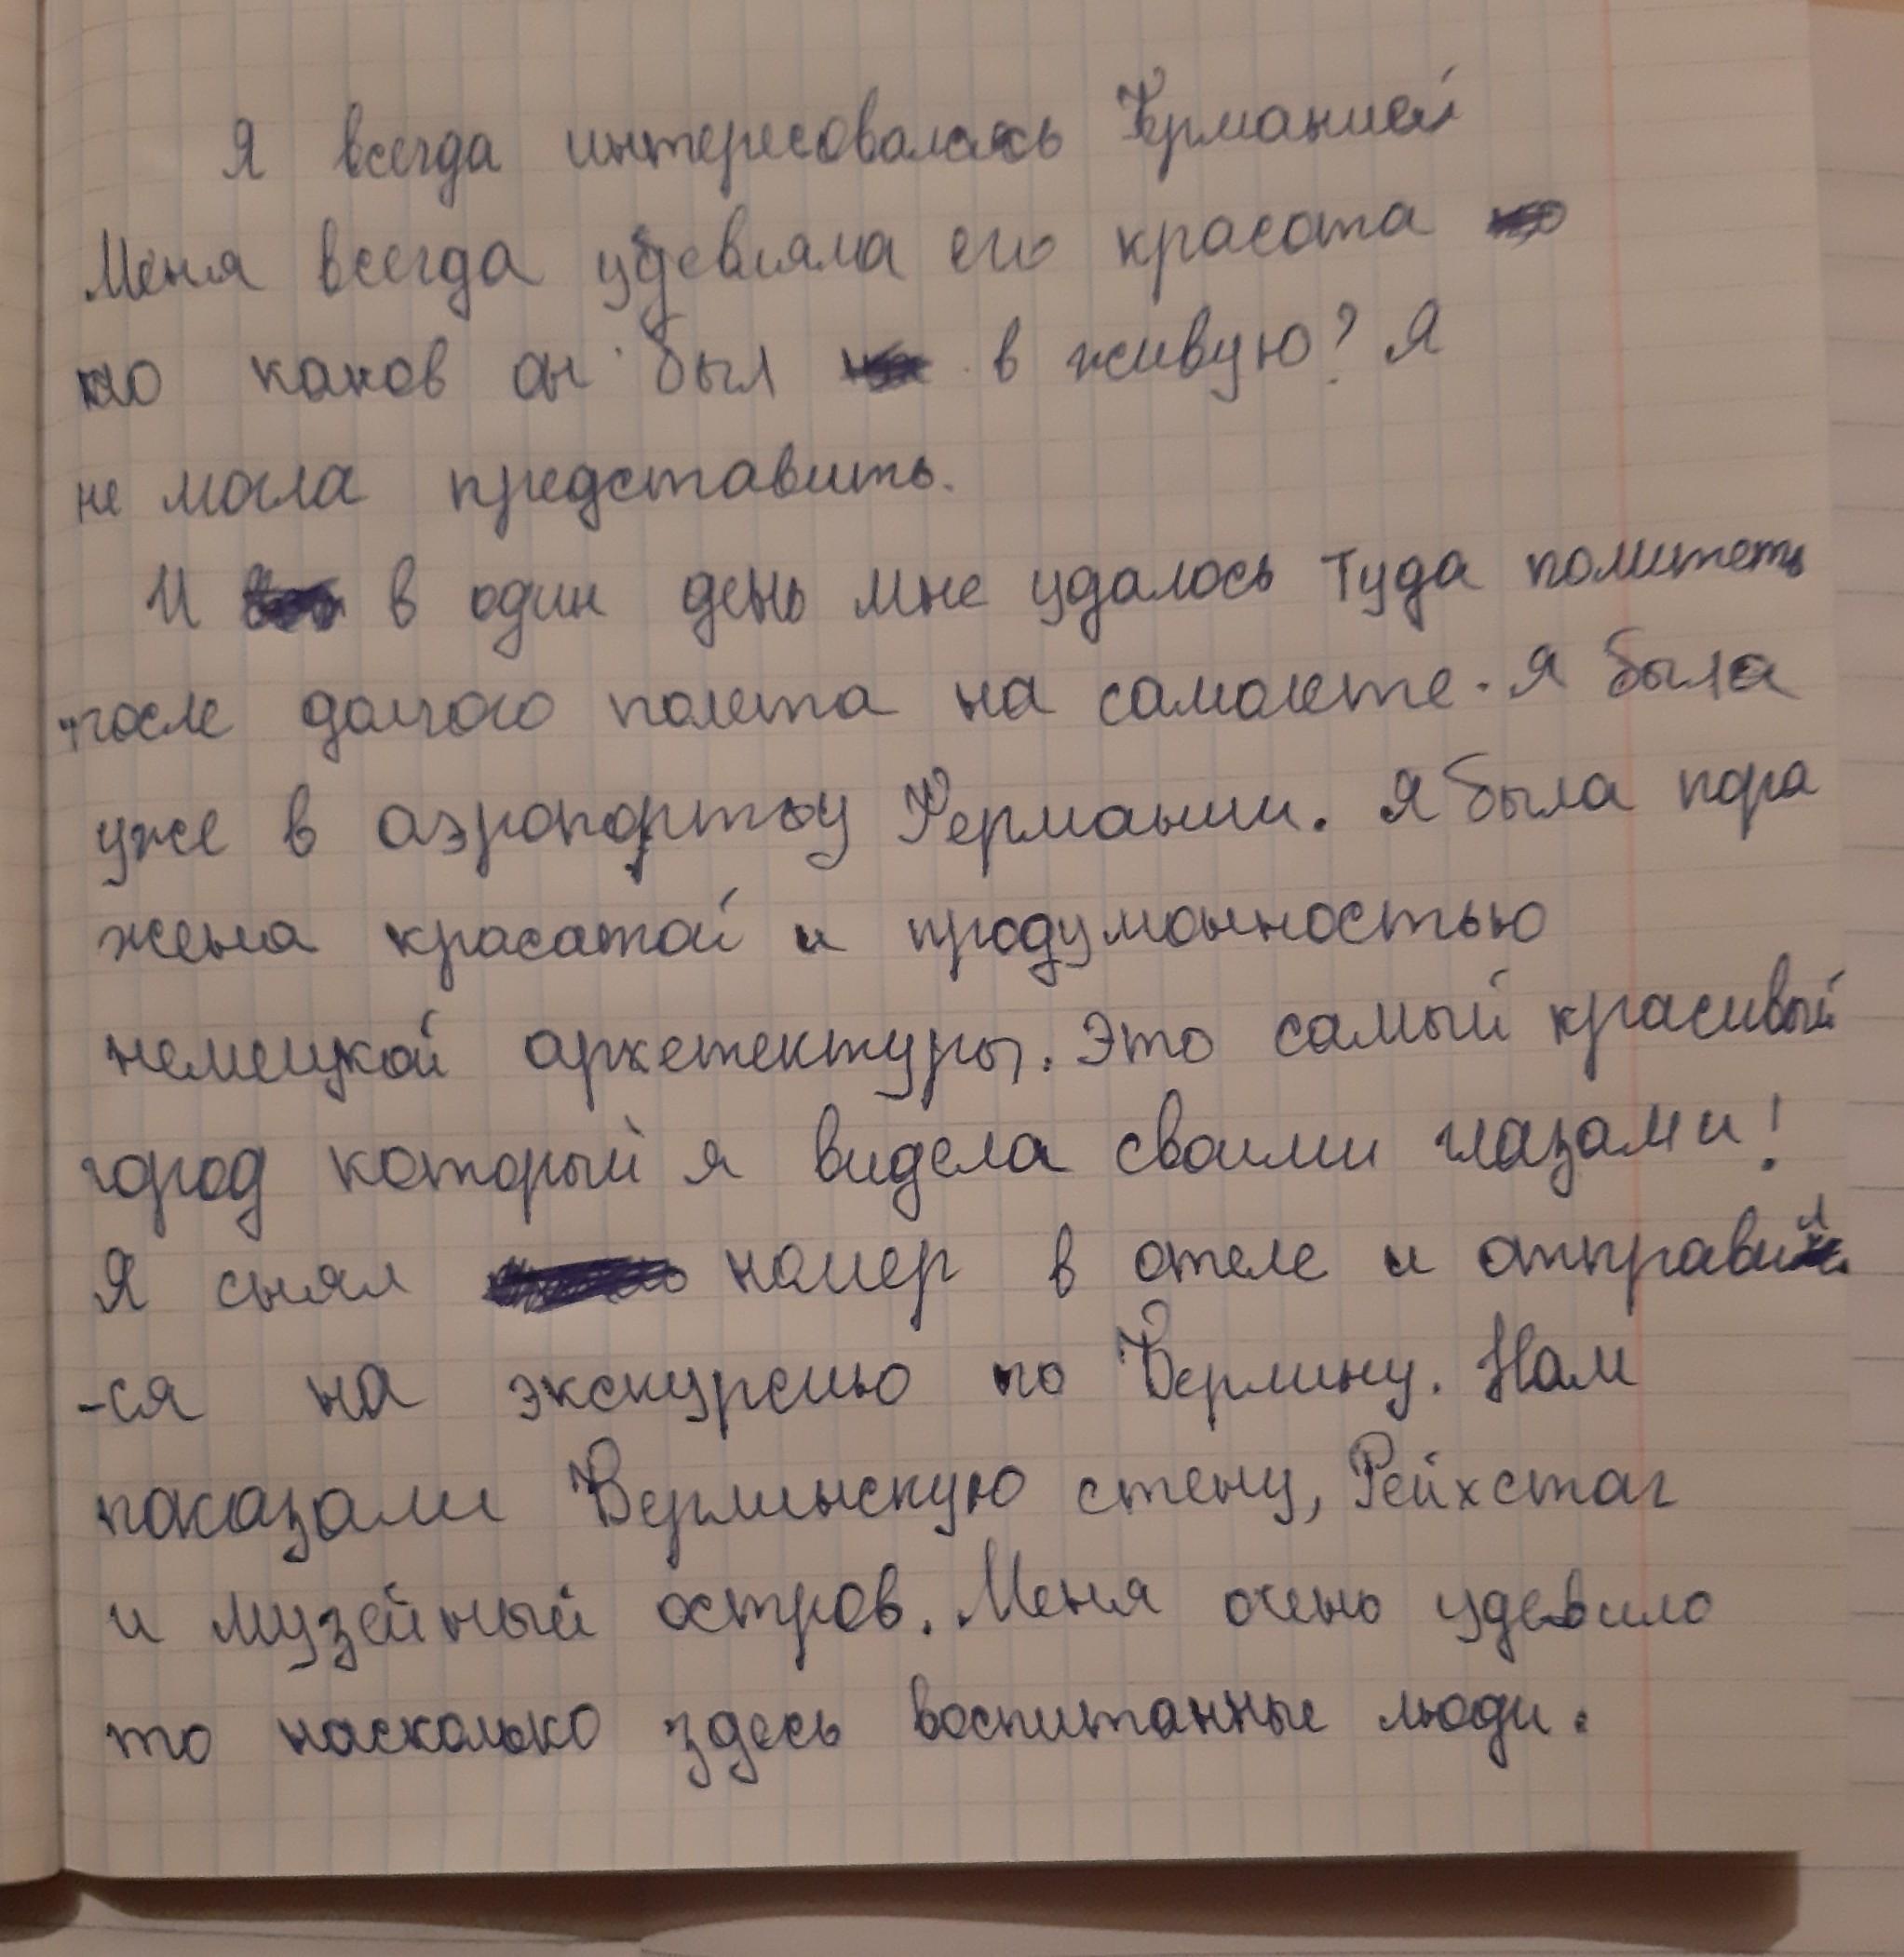 Я всегда интересовалась Германией
Меня всегда удевляла его красата
но каков он был в живую? Я
не могла представить.
И в один день мне удалось туда политеть
после долгого полета на самолете. Я была
уже в аэропорту Германии. Я была пора
жена красатой и продуманностью
немецкой архетектуры. Это самый красивый
город который я видела своими глазами!
Я снял номер в отеле и отправил
-ся на экскурсию по Берлину. Нам
показали Берлинскую стену, Рейхстаг
и музейный остров. Меня очень удевило
то насколько здесь воспитанные люди.